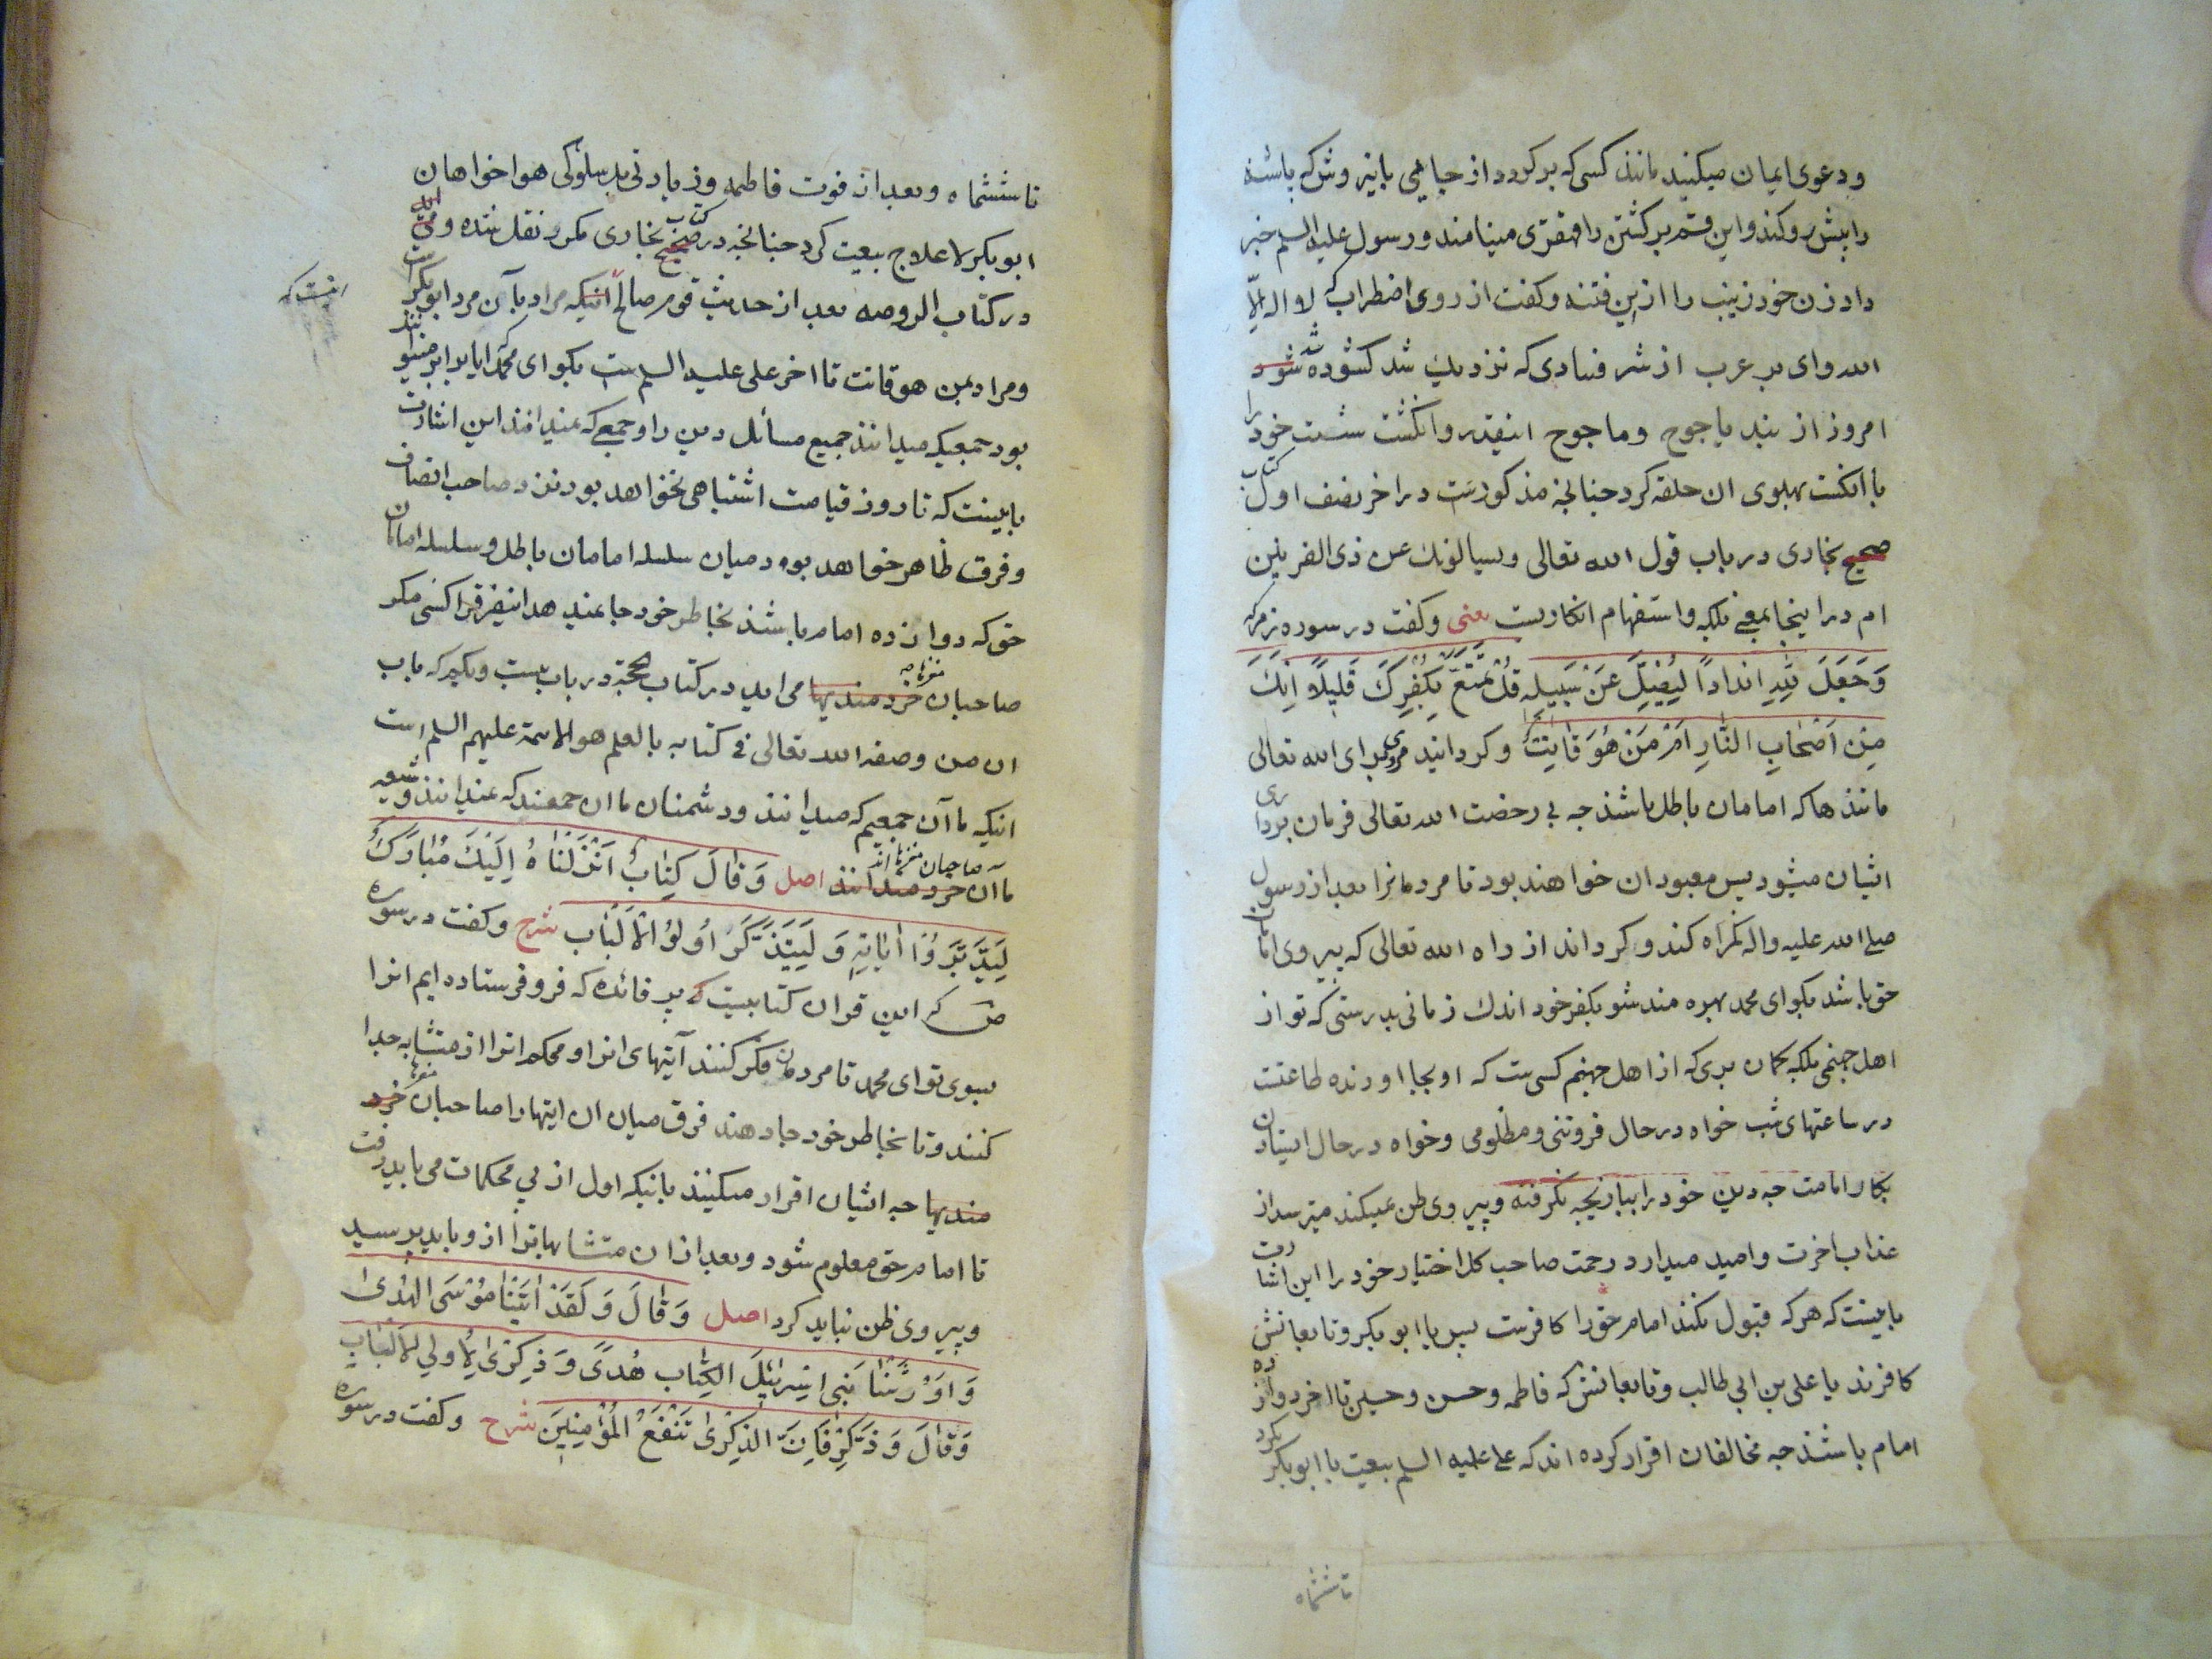 ودعوی ایمان میکنید مانند کسی که برکردد از جیاهی باین روش که پاشنه
را پیش رو کند و این قسم برکشتن را قهقری مینامند و رسول علیه السلم خبر
داد زن خود زینب را از این فتنه و کفت از روی اضطراب که لا اله الّا
الله وای بر عرب از شر فسادی که نزدیك شد کشوده شد
امروز از بند یاجوج وماجوج اینقدر وانکشت شست خود را
با انکشت پهلوی ان حلقه کرد چنانچه مذکورست در اخر نصف اول کتاب
صحیح بخاری در باب قول الله تعالی ویسالونك عن ذی القرنین
ام در اینجا بمعنی بلکه واستفهام انکاریست یعنی وکفت در سوره زمر که
وَجَعَلَ لِلّٰهِ اندادًا لِیُضِلَّ عَنْ سَبیلِهِ قُلْ تَمَتَّعْ بِکُفْرِكَ قَلیلًا اِنَّكَ
مِنْ اَصْحابِ النّارِ اَمْ مَنْ هُوَ قانِتٌ وکردانید مردی برای الله تعالی
مانندها که امامان باطل باشند چه بی رخصت الله تعالی فرمان برداری
ایشان میشود پس معبودان خواهند بود تا مردمانرا بعد از رسول
صلی الله علیه واله کمراه کند وکرداند از راه الله تعالی که پیروی امامان
حق باشد بکو ای محمد بهره مند شو بکفر خود اندك زمانی بدرستی که تو از
اهل جهنمی بلکه کمان بری که از اهل جهنم کسی ست که او بجا اورنده طاعتست
در ساعتهای شب خواه در حال فروتنی ومظلومی وخواه در حال ایستادن
بکار امامت چه دین خود را ببازیچه نکرفته وپیروی ظن نمیکند میترسد از
عذاب اخرت وامید میدارد رحمت صاحب کل اختیار خود را این اشارت
باینست که هر که قبول نکند امام حق را کافرست پس یا ابو بکر وتابعانش
کافرند یا علی بن ابی طالب وتابعانش که فاطمه وحسن وحسین تا اخر دوازده
امام باشند چه مخالفان اقرار کرده اند که علی علیه السلم بیعت با ابو بکر نکرد
تا ششماه
تا ششماه وبعد از فوت فاطمه وزیادتی بدسلوکی هواخواهان
ابو بکر لاعلاج بیعت کرد چنانچه در کتاب صحیح بخاری مکرر نقل شده و
در کتاب الروضه بعد از حدیث قوم صالح اینکه مراد بآن مرد ابو بکرست
اینست که
ومراد بمن هو قانت تا اخر علی علیه السلم ست بکو ای محمد که ایا برابر میتوانند
بود جمعیکه میدانند جمیع مسائل دین را وجمعی که نمیدانند این اشارت
باینست که تا روز قیامت اشتباهی نخواهد بود نزد صاحب انصاف
وفرق ظاهر خواهد بود میان سلسله امامان باطل وسلسله امامان
حق که دوازده امام باشند بخاطر خود جا نمیدهد اینفرقرا کسی مکر
صاحبان خردمندیها مغزها چه می اید در کتاب الحجة در باب بیست ویکم که باب
ان من وصفه الله تعالی فی کتابه بالعلم هو الائمة علیهم السلم است
اینکه ما آن جمعیم که میدانند ودشمنان ما ان جمعند که نمیدانند وشیعه
ما آن خردمندانند صاحبان مغزها اند اصل وَقالَ کِتابٌ اَنْزَلْناهُ اِلَیْكَ مُبارَكٌ
لِیَدَّبَّرُوا اٰیاتِهِ وَلِیَتَذَکَّرَ اُولُوا الْاَلْبابِ شرح وکفت در سوره
ص که این قران کتابیست پر فائده که فرو فرستاده ایم انرا
بسوی تو ای محمد تا مردمان فکر کنند آیتهای انرا ومحکم انرا از متشابه جدا
کنند وتا بخاطر خود جا دهند فرق میان ان ایتها را صاحبان خرد مغزها
مندیها چه ایشان اقرار میکنند باینکه اول از پی محکمات می باید رفت
تا امام حق معلوم شود وبعد از ان متشابهاترا از و باید پرسید
وپیروی ظن نباید کرد اصل وَقالَ وَلَقَدْ اٰتَیْنا مُوسَی الْهُدیٰ
وَاَوْرَثْنا بَنی اِسْرائیلَ الْکِتابَ هُدًی وَذِکْریٰ لِاُولِی الْاَلْبابِ
وَقالَ وَذَکِّرْ فَاِنَّ الذِّکْریٰ تَنْفَعُ الْمُؤْمِنینَ شرح وکفت در سوره